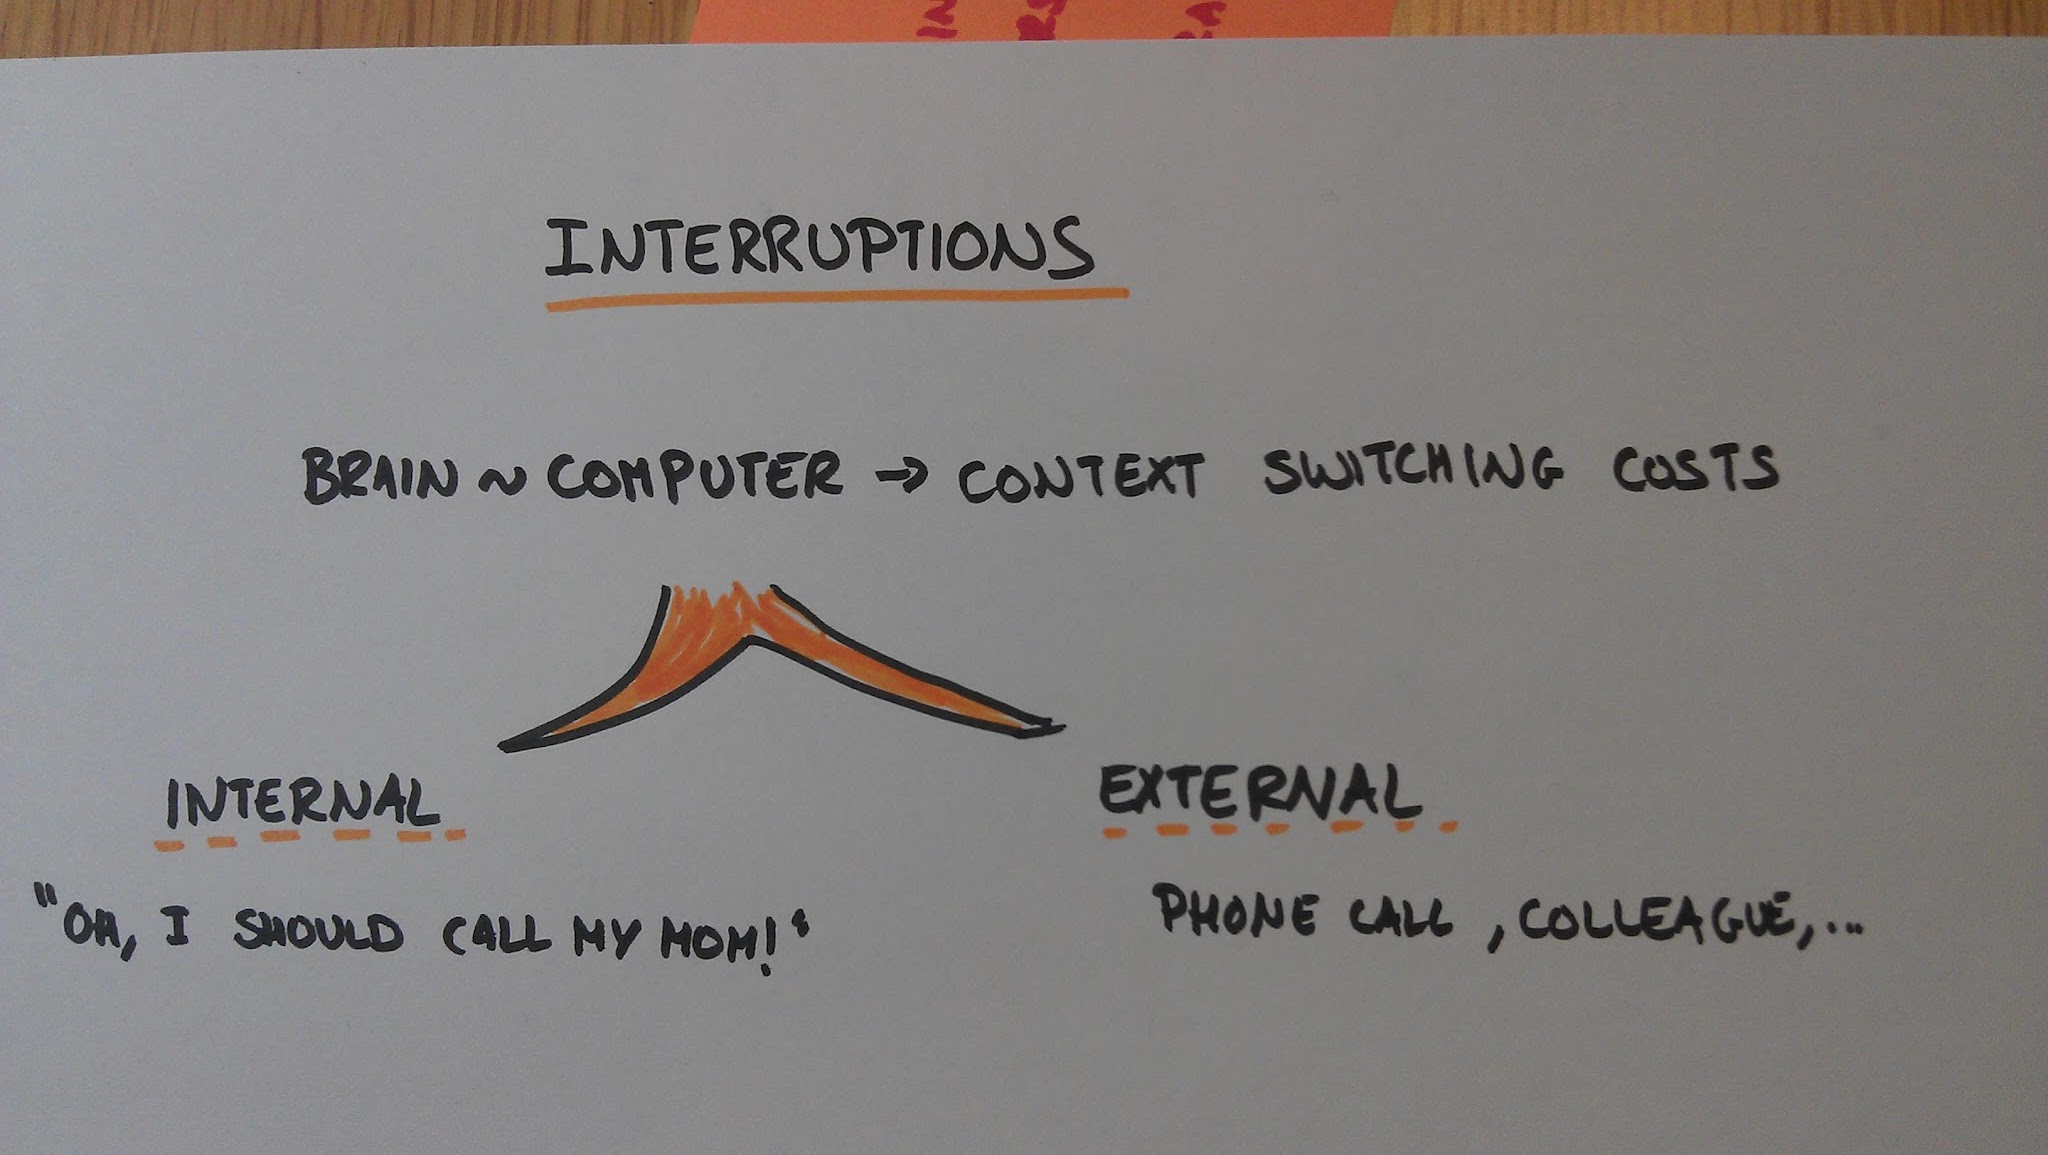 INTERRUPTIONS
BRAIN ~ COMPUTER → CONTEXT SWITCHING COSTS
INTERNAL
EXTERNAL
"OH, I SHOULD CALL MY MOM!"
PHONE CALL, COLLEAGUE,...